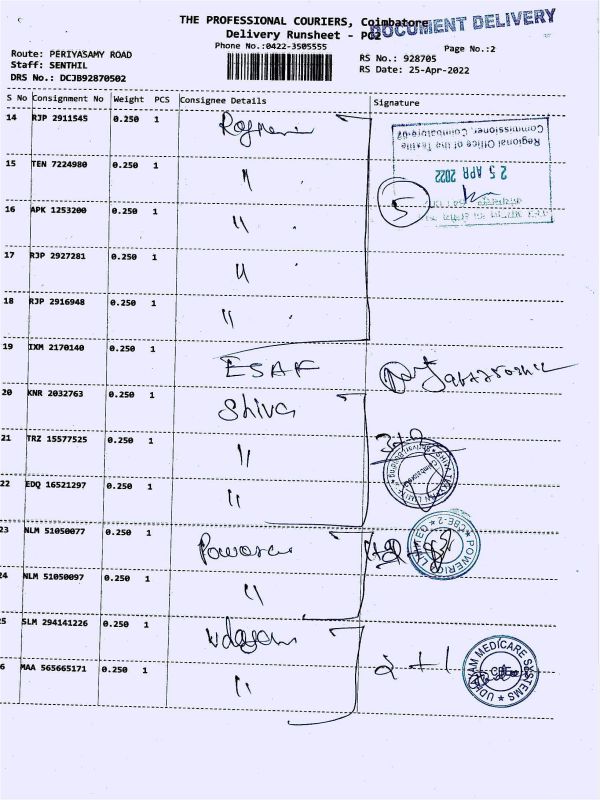 THE PROFESSIONAL COURIERS, Coimbatore
DOCUMENT DELIVERY
Delivery Runsheet - POD
Phone No.:0422-3505555
Page No.:2
Route: PERIYASAMY ROAD
Staff: SENTHIL
DRS No.: DCJB92870502
RS No.: 928705
RS Date: 25-Apr-2022
S No Consignment No Weight PCS Consignee Details Signature
14 RJP 2911545 0.250 1
Regional Office of the Textile
Commissioner, Coimbatore-02
25 APR 2022
15 TEN 7224980 0.250 1 "
16 APK 1253200 0.250 1 " 5
17 RJP 2927281 0.250 1 "
18 RJP 2916948 0.250 1 "
19 IXM 2170140 0.250 1 ESAF
20 KNR 2032763 0.250 1 Shiva
21 TRZ 15577525 0.250 1 "
22 EDQ 16521297 0.250 1 "
23 NLM 51050077 0.250 1
POWERICA LIMITED * CBE-2 *
24 NLM 51050097 0.250 1 "
25 SLM 294141226 0.250 1 Udayam
26 MAA 565665171 0.250 1 " 2+1
UDHAYAM MEDICARE SYSTEMS *